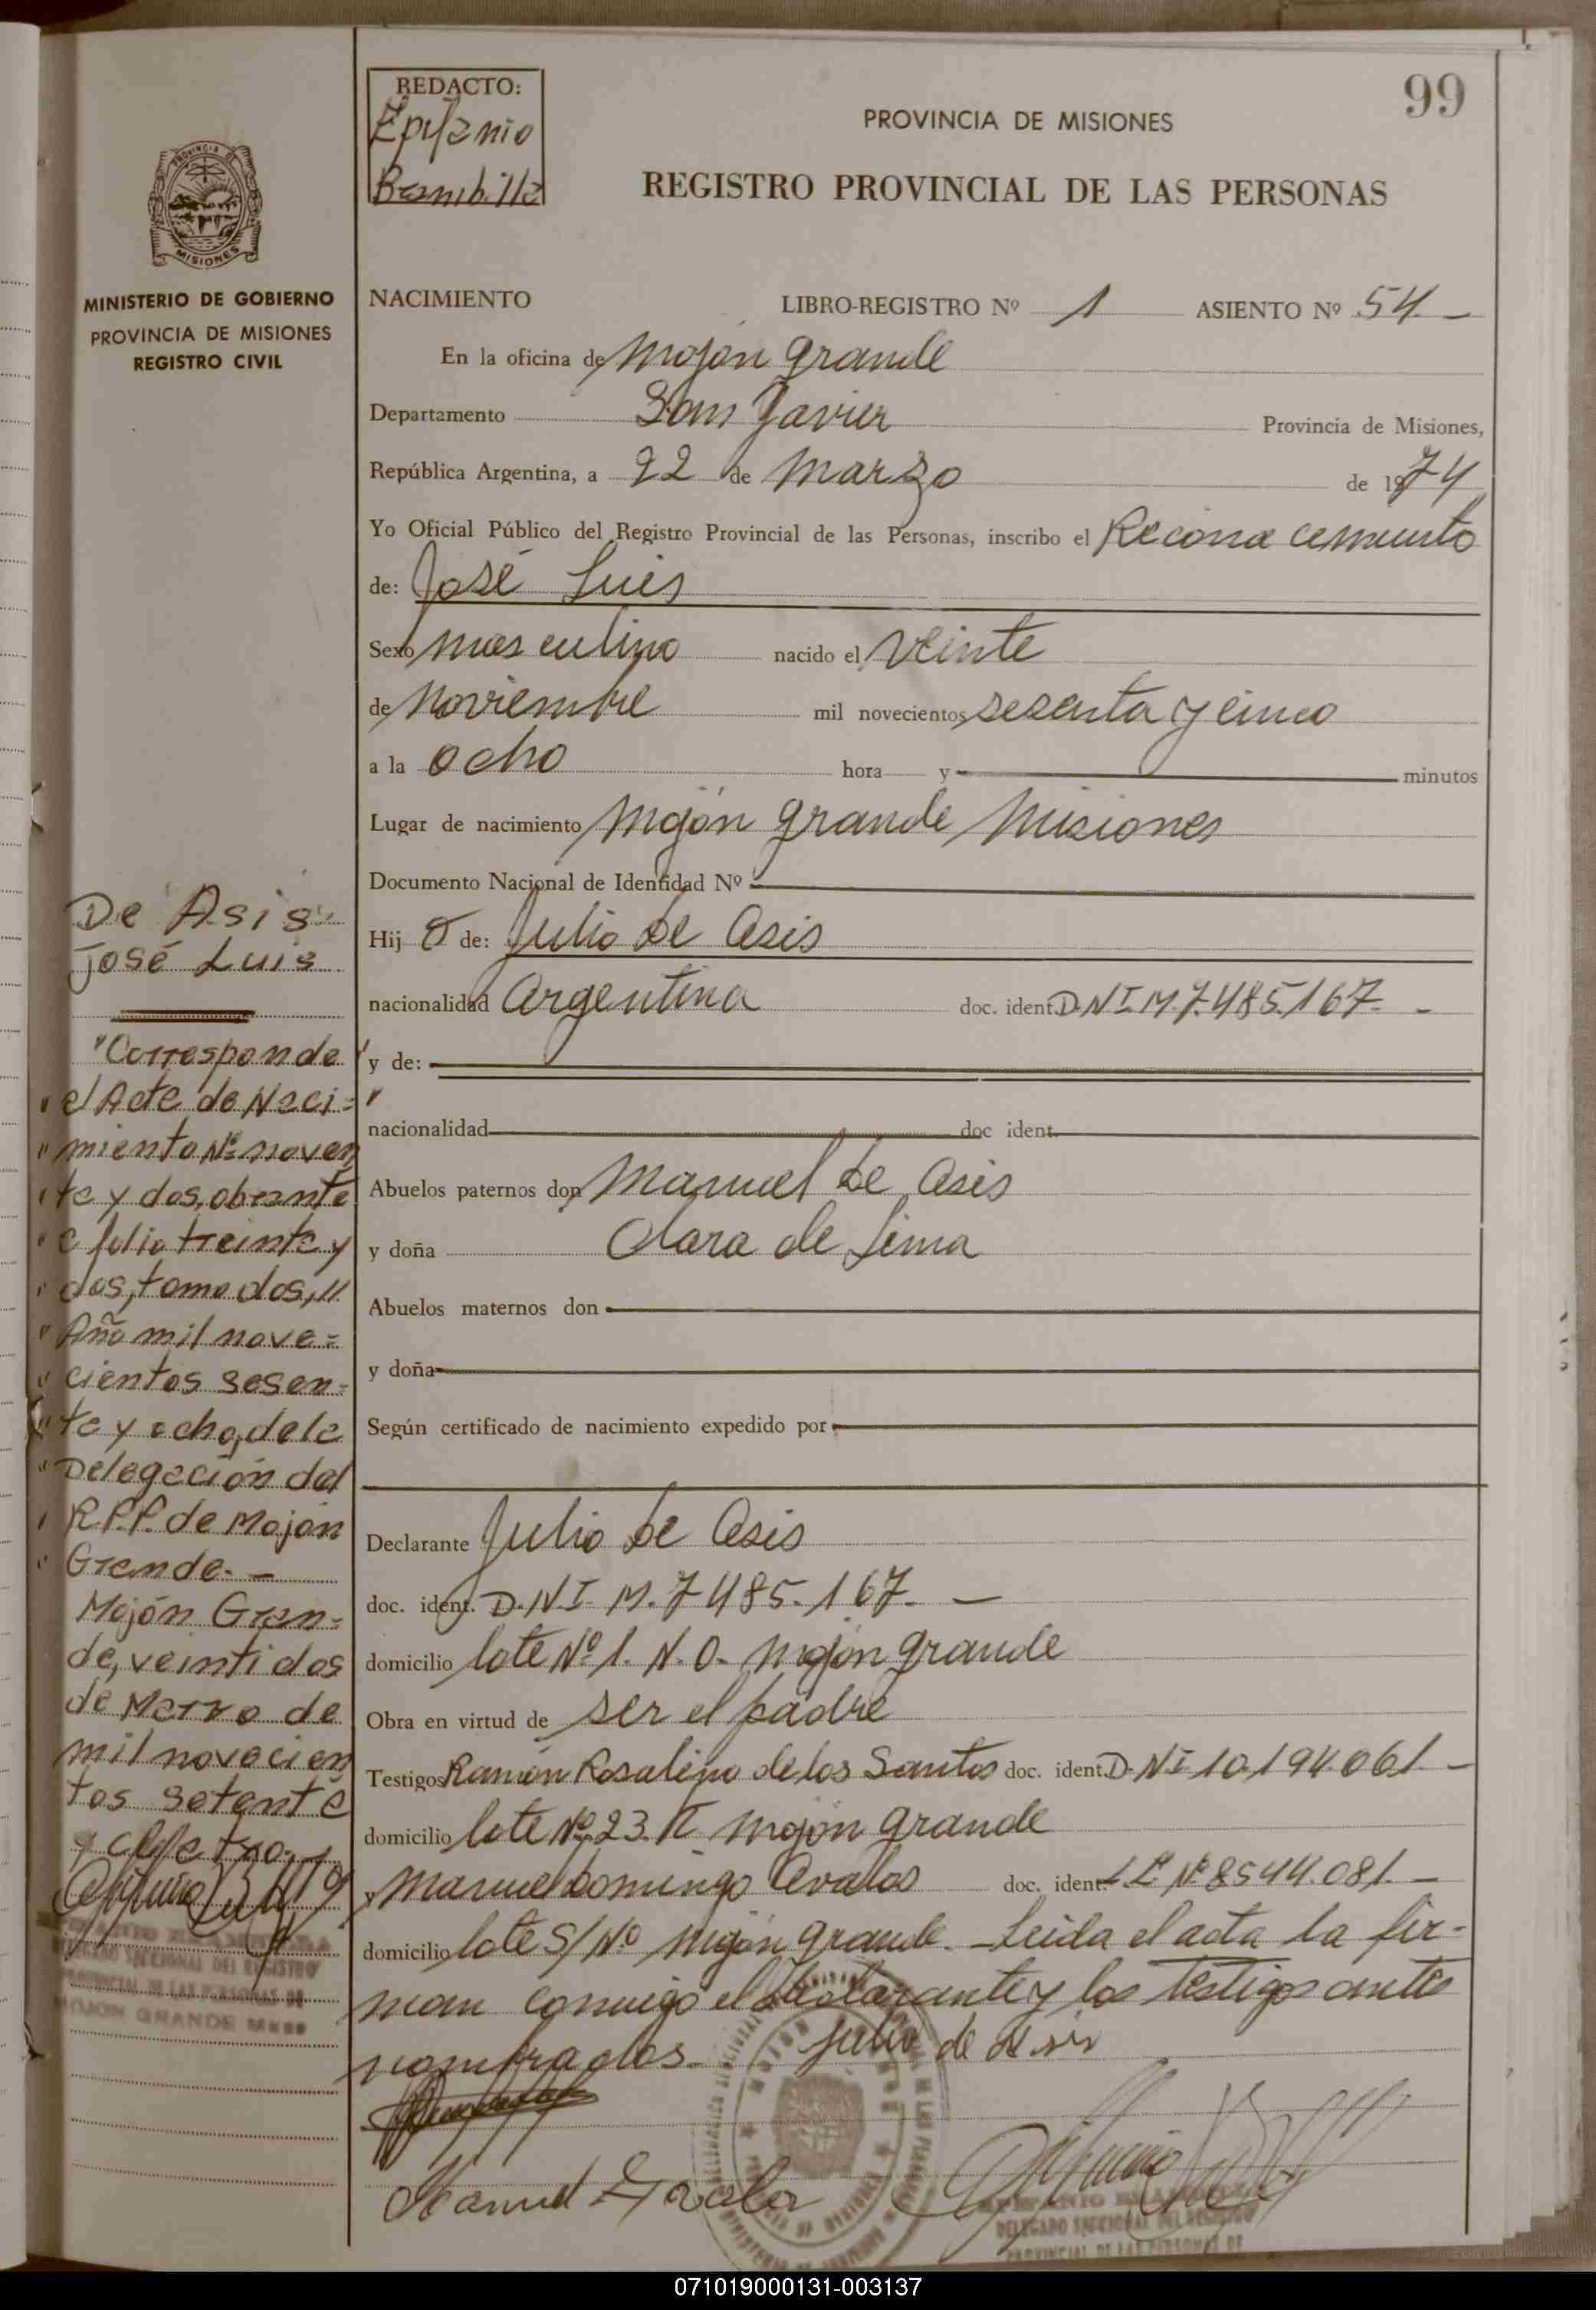 99
REDACTO:
Epifanio
Brambilla
PROVINCIA DE MISIONES
REGISTRO PROVINCIAL DE LAS PERSONAS
PROVINCIA DE
MISIONES
MINISTERIO DE GOBIERNO
PROVINCIA DE MISIONES
REGISTRO CIVIL
NACIMIENTO LIBRO-REGISTRO Nº 1 ASIENTO Nº 54.-
En la oficina de Mojón Grande
Departamento San Javier Provincia de Misiones,
República Argentina, a 22 de Marzo de 1974
Yo Oficial Público del Registro Provincial de las Personas, inscribo el Reconocemiento
de: José Luis
Sexo masculino nacido el Veinte
de Noviembre mil novecientos sesenta y cinco
a la ocho hora y minutos
Lugar de nacimiento Mojón Grande Misiones
Documento Nacional de Identidad Nº
Hijo de: Julio de Asis
nacionalidad Argentina doc. ident. D.N.I.M. 7.485.167.-
y de:
nacionalidad doc ident.
Abuelos paternos don Manuel de Asis
y doña Clara de Lima
Abuelos maternos don
y doña
Según certificado de nacimiento expedido por
Declarante Julio de Asis
doc. ident. D.N.I.M. 7485.167.-
domicilio lote Nº 1. N.O. Mojón Grande
Obra en virtud de ser el padre
Testigos Ramón Rosalino de los Santos doc. ident. D.N.I 10.194.061.-
domicilio lote Nº 23. Mojón Grande
y Manuel Domingo Avalos doc. ident. L.E. Nº 8544.081.-
domicilio lote S/Nº Mojón Grande.- Leida el acta la fir-
man conmigo el declarante y los testigos antes
nombrados.- Julio de Asis
Manuel Avalos
DELEGADO SECCIONAL DEL REGISTRO
PROVINCIAL DE LAS PERSONAS DE
De Asis
José Luis
"Corresponde"
"al Acta de Naci="
"miento Nº noven
"ta y dos, obrante
"a folio treinta y
"dos, tomo dos,
"Año mil nove=
"cientos sesen=
"ta y ocho, de la
"Delegación del
"R.P.P. de Mojón
"Grande.-
Mojón Gran=
de, veintidos
de Marzo de
mil novecien
tos setenta
y cuatro.-
DELEGADO SECCIONAL DEL REGISTRO
PROVINCIAL DE LAS PERSONAS DE
MOJON GRANDE Mnes
071019000131-003137